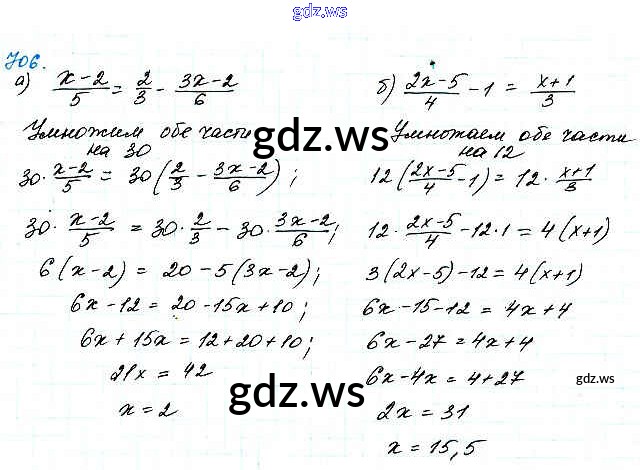 gdz.ws
706.
а) (x-2)/5 = 2/3 - (3x-2)/6
Умножим обе части
на 30
30·(x-2)/5 = 30(2/3 - (3x-2)/6);
30·(x-2)/5 = 30·2/3 - 30·(3x-2)/6;
6(x-2) = 20-5(3x-2);
6x-12 = 20-15x+10;
6x+15x = 12+20+10;
21x = 42
x = 2
б) (2x-5)/4 - 1 = (x+1)/3
Умножаем обе части
на 12
12((2x-5)/4 - 1) = 12·(x+1)/3
12·(2x-5)/4 - 12·1 = 4(x+1)
3(2x-5)-12 = 4(x+1)
6x-15-12 = 4x+4
6x-27 = 4x+4
6x-4x = 4+27
2x = 31
x = 15,5
gdz.ws
gdz.ws
gdz.ws